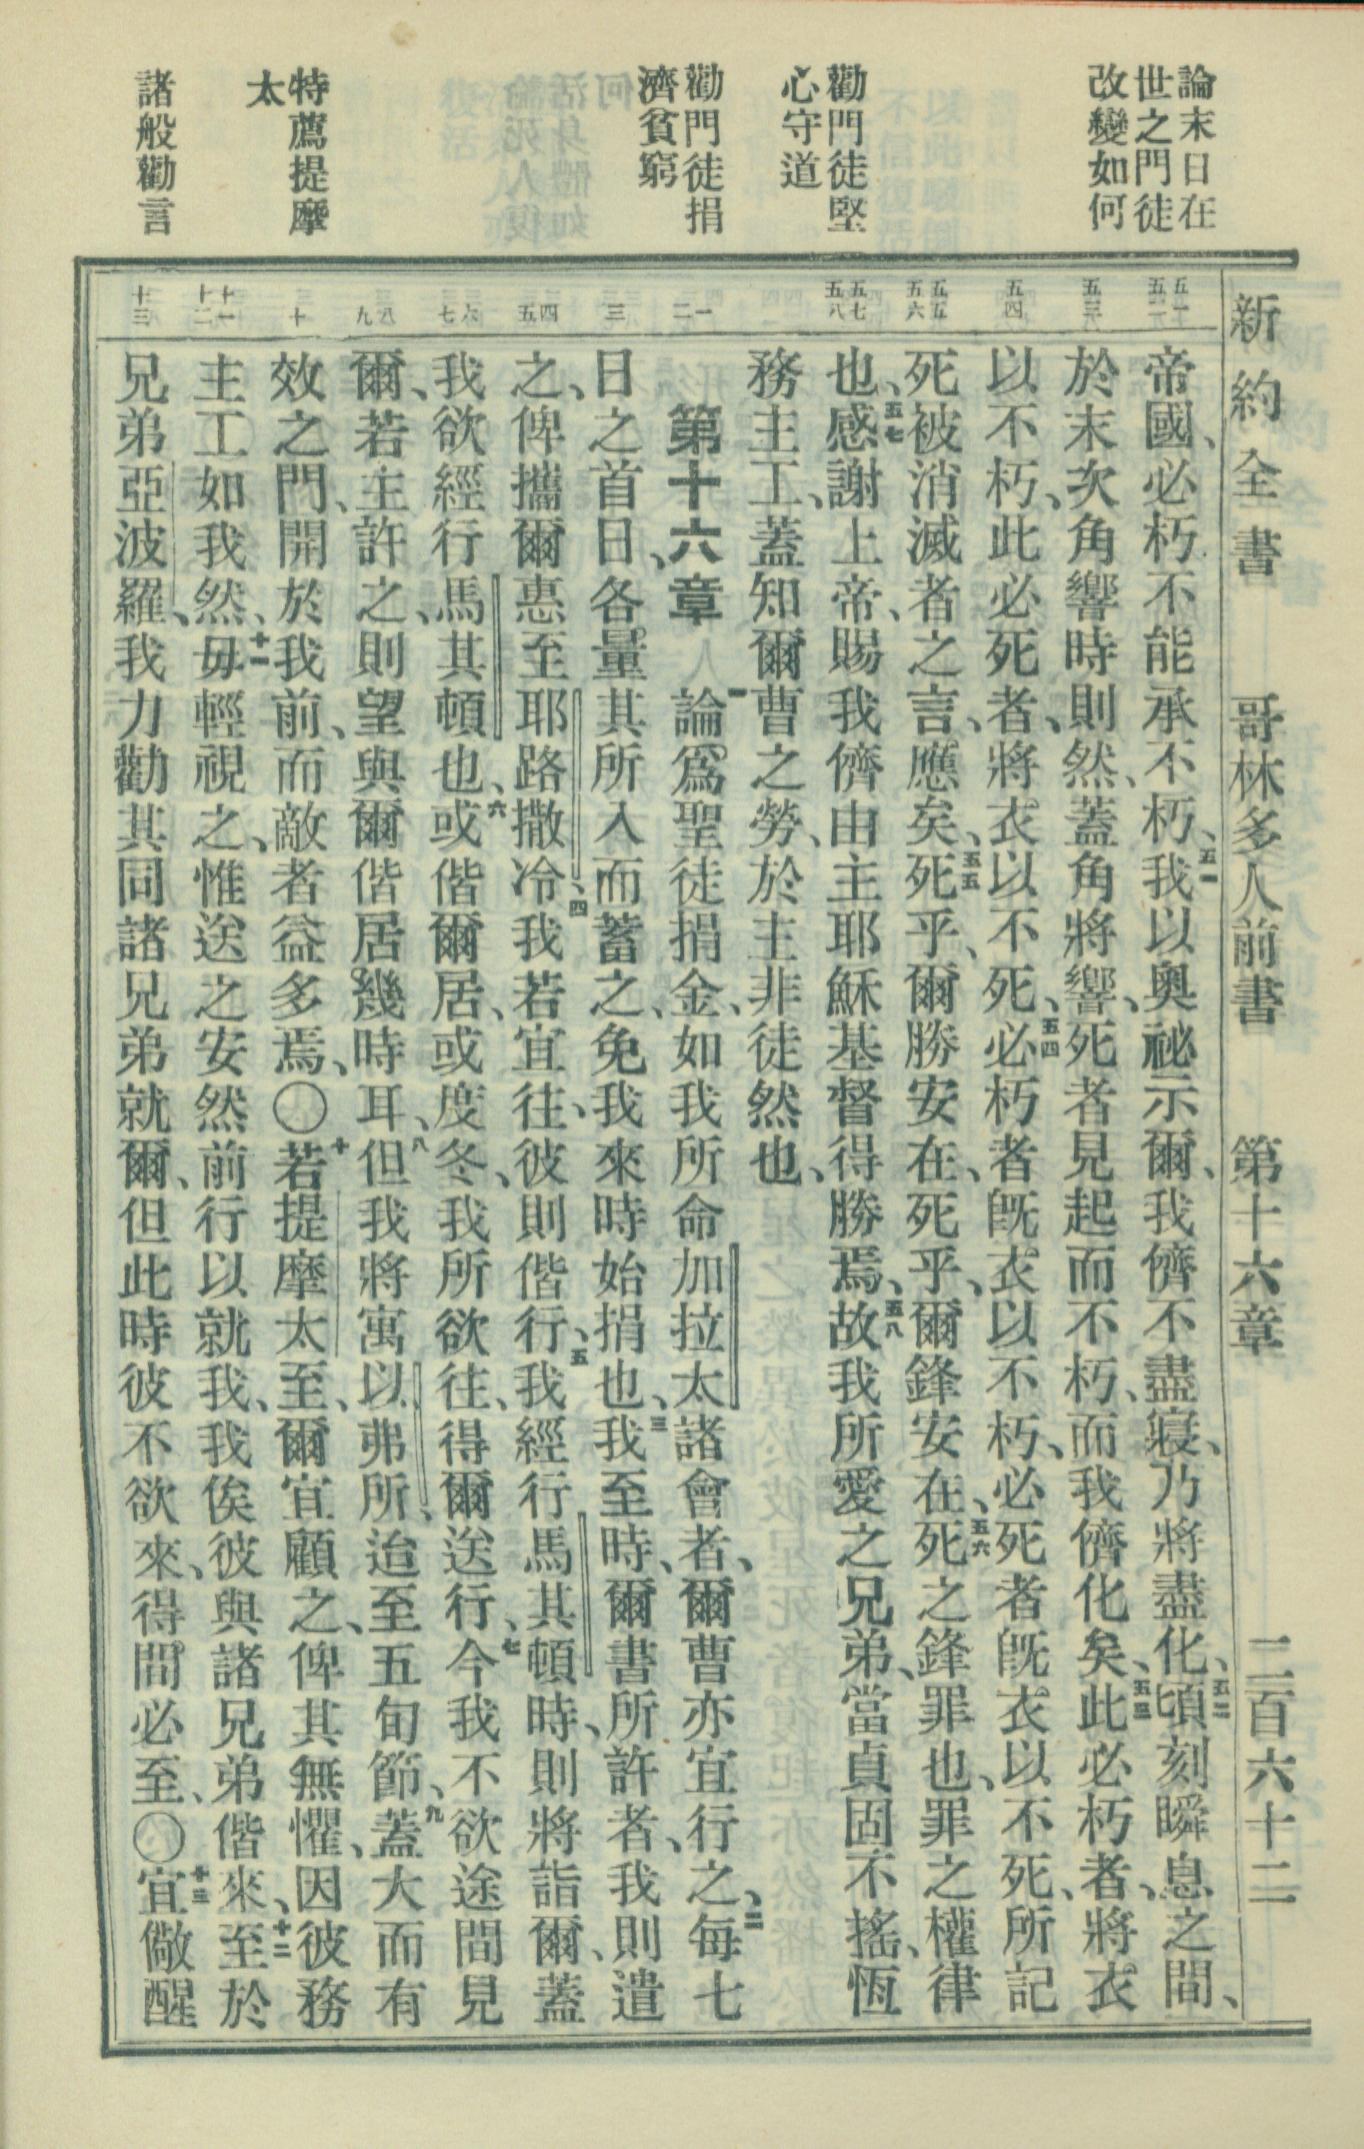 論末日在
世之門徒
改變如何
勸門徒堅
心守道
勸門徒捐
濟貧窮
特薦提摩
太
諸般勸言
新約全書 哥林多人前書 第十六章 二百六十二
五一 五二
五三
五四
五五 五六
五七 五八
一 二
三
四 五
六 七
八 九
十
十一 十二
十三
帝國、必朽不能承不朽、五一我以奧祕示爾、我儕不盡寢、乃將盡化、五二頃刻瞬息之間、
於末次角響時則然、蓋角將響、死者見起而不朽、而我儕化矣、五三此必朽者、將衣
以不朽、此必死者、將衣以不死、五四必朽者旣衣以不朽、必死者旣衣以不死、所記
死被消滅者之言、應矣、五五死乎、爾勝安在、死乎、爾鋒安在、五六死之鋒罪也、罪之權律
也、五七感謝上帝、賜我儕由主耶穌基督得勝焉、五八故我所愛之兄弟、當貞固不搖、恆
務主工、蓋知爾曹之勞、於主非徒然也、
第十六章 一論爲聖徒捐金、如我所命加拉太諸會者、爾曹亦宜行之、二每七
日之首日、各量其所入而蓄之、免我來時始捐也、三我至時、爾書所許者、我則遣
之、俾攜爾惠至耶路撒冷、四我若宜往、彼則偕行、五我經行馬其頓時、則將詣爾、蓋
我欲經行馬其頓也、六或偕爾居、或度冬、我所欲往、得爾送行、七今我不欲途間見
爾、若主許之、則望與爾偕居幾時耳、八但我將寓以弗所、迨至五旬節、九蓋大而有
效之門、開於我前、而敵者益多焉、〇十若提摩太至、爾宜顧之、俾其無懼、因彼務
主工如我然、十一毋輕視之、惟送之安然前行以就我、我俟彼與諸兄弟偕來、十二至於
兄弟亞波羅、我力勸其同諸兄弟就爾、但此時彼不欲來、得間必至、〇十三宜儆醒